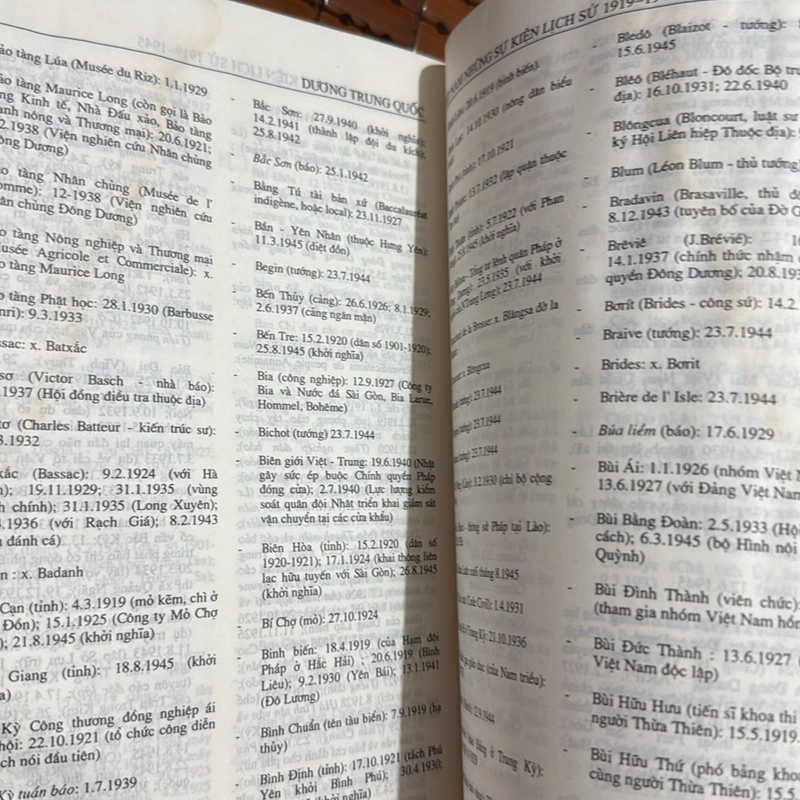 DƯƠNG TRUNG QUỐC
ảo tàng Lúa (Musée du Riz): 1.1.1929
ảo tàng Maurice Long (còn gọi là Bảo
Kinh tế, Nhà Đấu xảo, Bảo tàng
nông và Thương mại); 20.6.1921;
1938 (Viện nghiên cứu Nhân chủng
Đông Dương)
tàng Nhân chủng (Musée de l'
omme): 12-1938 (Viện nghiên cứu
chủng Đông Dương)
tàng Nông nghiệp và Thương mại
Agricole et Commerciale): x.
tàng Maurice Long
tàng Phật học: 28.1.1930 (Barbusse
nri): 9.3.1933
ssac: x. Batxắc
sơ (Victor Basch - nhà báo):
1937 (Hội đồng điều tra thuộc địa)
tơ (Charles Batteur - kiến trúc sư):
3.1932
xắc (Bassac): 9.2.1924 (với Hà
); 19.11.1929; 31.1.1935 (vùng
chính); 31.1.1935 (Long Xuyên);
1936 (với Rạch Giá); 8.2.1943
đánh cá)
n : x. Badanh
Cạn (tỉnh): 4.3.1919 (mỏ kẽm, chì ở
Đồn); 15.1.1925 (Công ty Mỏ Chợ
); 21.8.1945 (khởi nghĩa)
Giang (tỉnh): 18.8.1945 (khởi
a)
Kỳ Công thương đồng nghiệp ái
hội: 22.10.1921 (tổ chức công diễn
ch nói đầu tiên)
Kỳ tuần báo: 1.7.1939
- Bắc Sơn: 27.9.1940 (khởi nghĩa);
14.2.1941 (thành lập đội du kích);
25.8.1942
- Bắc Sơn (báo): 25.1.1942
- Bằng Tú tài bản xứ (Baccalauréat
indigène, hoặc local): 23.11.1927
- Bần - Yên Nhân (thuộc Hưng Yên):
11.3.1945 (diệt đồn)
- Begin (tướng): 23.7.1944
- Bến Thủy (cảng): 26.6.1926; 8.1.1929;
2.6.1937 (cảng ngăn mặn)
- Bến Tre: 15.2.1920 (dân số 1901-1920);
25.8.1945 (khởi nghĩa)
- Bia (công nghiệp): 12.9.1927 (Công ty
Bia và Nước đá Sài Gòn, Bia Larue,
Hommel, Bohème)
- Bichot (tướng) 23.7.1944
- Biên giới Việt - Trung: 19.6.1940 (Nhật
gây sức ép buộc Chính quyền Pháp
đóng cửa); 2.7.1940 (Lực lượng kiểm
soát quân đội Nhật triển khai giám sát
vận chuyển tại các cửa khẩu)
- Biên Hòa (tỉnh): 15.2.1920 (dân số
1920-1921); 17.1.1924 (khai thông liên
lạc hữu tuyến với Sài Gòn); 26.8.1945
(khởi nghĩa)
- Bí Chợ (mỏ): 27.10.1924
- Binh biến: 18.4.1919 (của Hạm đội
Pháp ở Hắc Hải) ; 20.6.1919 (Bình
Liêu); 9.2.1930 (Yên Bái); 13.1.1941
(Đô Lương)
- Bình Chuẩn (tên tàu biển): 7.9.1919 (hạ
thủy)
- Bình Định (tỉnh): 17.10.1921 (tách Phú
Yên khỏi Bình Phú); 30.4.1930;
(khởi nghĩa)
NAM NHỮNG SỰ KIỆN LỊCH SỬ 1919-
20.6.1919 (binh biến).
14.10.1930 (nông dân biểu
17.10.1921
13.7.1932 (lập quân thuộc
5.7.1922 (với Phan
1945 (khởi nghĩa)
Tổng tư lệnh quân Pháp ở
23.5.1935 (với khởi
23.7.1944
de la Brosse: x. Blăngsa đờ la
x. Blôngcua
23.7.1944
23.7.1944
23.7.1944
3.2.1930 (chi bộ cộng
tại Lào):
tháng 8.1945
1.4.1931
Trung Kỳ: 21.10.1936
(của Nam triều):
12.9.1944
ở Trung Kỳ):
- Bledô (Blaizot - tướng):
15.6.1945
- Blêô (Bléhaut - Đô đốc Bộ tr
địa): 16.10.1931; 22.6.1940
- Blôngcua (Bloncourt, luật sư
ký Hội Liên hiệp Thuộc địa):
- Blum (Léon Blum - thủ tướng)
- Bradavin (Brasaville, thủ đ
8.12.1943 (tuyên bố của Đờ G
- Brêviê (J.Brévié):
14.1.1937 (chính thức nhậm
quyền Đông Dương); 20.8.193
- Bơrít (Brides - công sứ): 14.2.
- Braive (tướng): 23.7.1944
- Brides: x. Bơrit
- Brière de l' Isle: 23.7.1944
- Búa liềm (báo): 17.6.1929
- Bùi Ái: 1.1.1926 (nhóm Việt N
13.6.1927 (với Đảng Việt Nam
- Bùi Bằng Đoàn: 2.5.1933 (Hội
cách); 6.3.1945 (bộ Hình nội
Quỳnh)
- Bùi Đình Thành (viên chức):
(tham gia nhóm Việt Nam hồn
- Bùi Đức Thành : 13.6.1927 (
Việt Nam độc lập)
- Bùi Hữu Hưu (tiến sĩ khoa thi
người Thừa Thiên): 15.5.1919.
- Bùi Hữu Thứ (phó bảng khoa
cùng người Thừa Thiên): 15.5